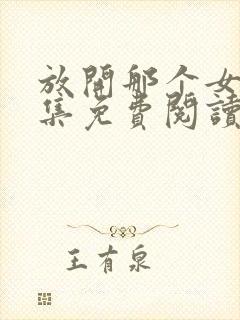 放開那个女
集免費閱讀
王有泉